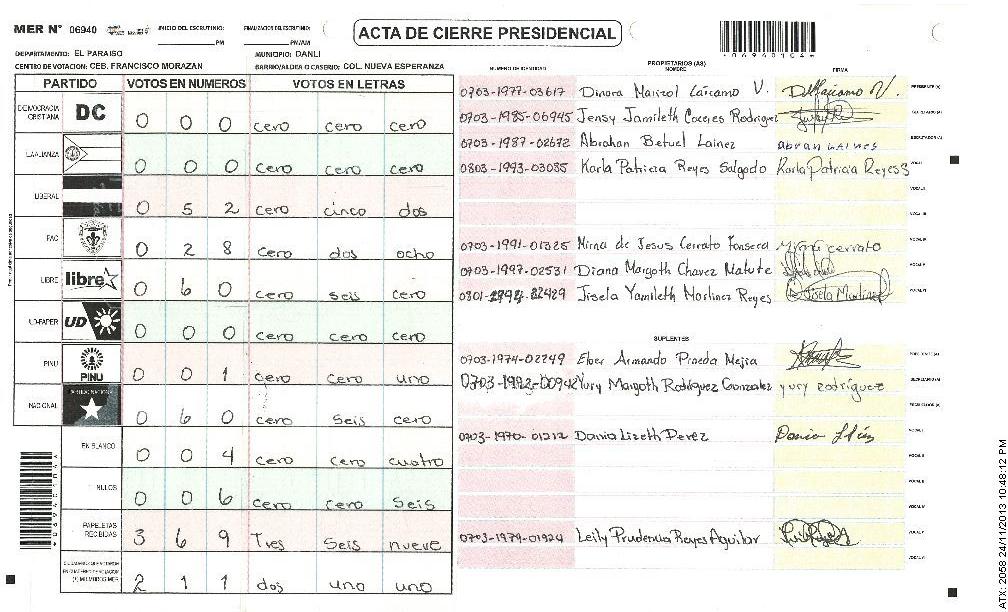 MER N° 06940 INICIO DEL ESCRUTINIO: PM FINALIZACION DEL ESCRUTINIO: PM/AM
ACTA DE CIERRE PRESIDENCIAL
06960104
DEPARTAMENTO: EL PARAISO MUNICIPIO: DANLI
CENTRO DE VOTACION: CEB. FRANCISCO MORAZAN BARRIO/ALDEA O CASERIO: COL. NUEVA ESPERANZA
PARTIDO VOTOS EN NUMEROS VOTOS EN LETRAS
DEMOCRACIA CRISTIANA DC 0 0 0 cero cero cero
LA ALIANZA 0 0 0 cero cero cero
LIBERAL 0 5 2 cero cinco dos
PAC 0 2 8 cero dos ocho
LIBRE libre 0 6 0 cero seis cero
UD-FAPER UD 0 0 0 cero cero cero
PINU PINU 0 0 1 cero cero uno
NACIONAL 0 6 0 cero seis cero
EN BLANCO 0 0 4 cero cero cuatro
NULOS 0 0 6 cero cero seis
PAPELETAS RECIBIDAS 3 6 9 Tres seis nueve
(+) MIEMBROS MER 2 1 1 dos uno uno
NUMERO DE IDENTIDAD PROPIETARIOS (AS) NOMBRE FIRMA
0703-1977-03617 Dinora Marizol Laicamo V. PRESIDENTE (A)
0703-1985-06945 Jensy Jamileth Caceres Rodriguez SECRETARIO (A)
0703-1987-02672 Abrahan Betuel Lainez abran LAINES ESCRUTADOR (A)
0803-1993-03085 Karla Patricia Reyes Salgado Karla Patricia Reyes S VOCAL I
VOCAL II
VOCAL III
0703-1991-01325 Mirna de Jesus Cerrato Fonseca Mirna cerrato VOCAL IV
0703-1997-02531 Diana Margoth Chavez Matute VOCAL V
Jisela Yamileth Martinez Reyes Jisela Martinez VOCAL VI
SUPLENTES
0703-1974-02249 Elber Armando Pineda Mejia PRESIDENTE (A)
0703-1992-00942 Yury Margoth Rodriguez Gonzalez yury rodriguez SECRETARIO (A)
ESCRUTADOR (A)
0703-1970-01212 Dania Lizeth Perez VOCAL I
VOCAL II
VOCAL III
VOCAL IV
0703-1979-01924 Leily Prudencia Reyes Aguilar VOCAL V
VOCAL VI
ATX: 2058 24/11/2013 10:48:12 PM